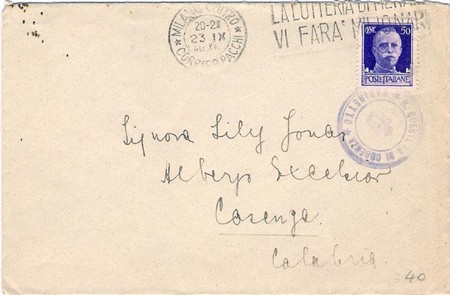 MILANO CENTRO
20-21
23 IX
CORRISP. PACCHI
LA LOTTERIA DI MERANO
VI FARA' MILIONARI
CENT. 50
POSTE ITALIANE
DI COSENZA
Signora Lily Jonas
Albergo Excelsior,
Cosenza.
Calabria
40